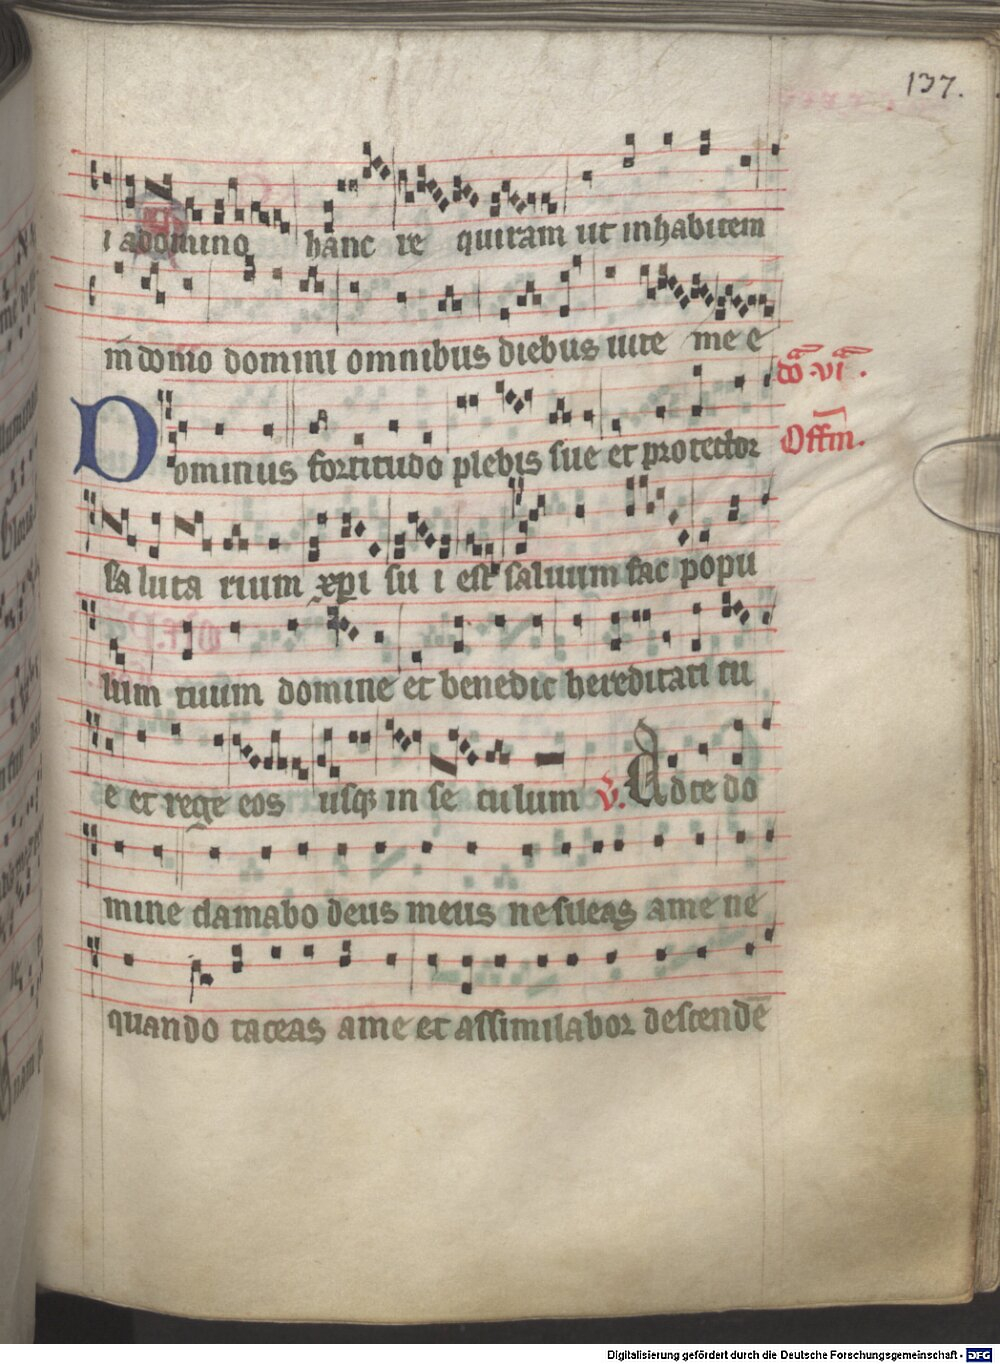 137.
i a domino hanc re quiram ut inhabitem
in domo domini omnibus diebus uite me e
dō vi.
Offm.
Dominus fortitudo plebis sue et protector
sa luta rium xpi su i est saluum fac popu
lum tuum domine et benedic hereditati tu
e et rege eos usq; in se culum v. Ad te do
mine clamabo deus meus ne sileas a me ne
quando taceas a me et assimilabor descendē
Digitalisierung gefördert durch die Deutsche Forschungsgemeinschaft - DFG